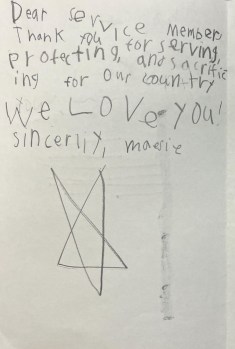 Dear service member
Thank you for serving,
protecting, and sacrific
ing for our country
We LOVe YOU!
sincerlly, maesie